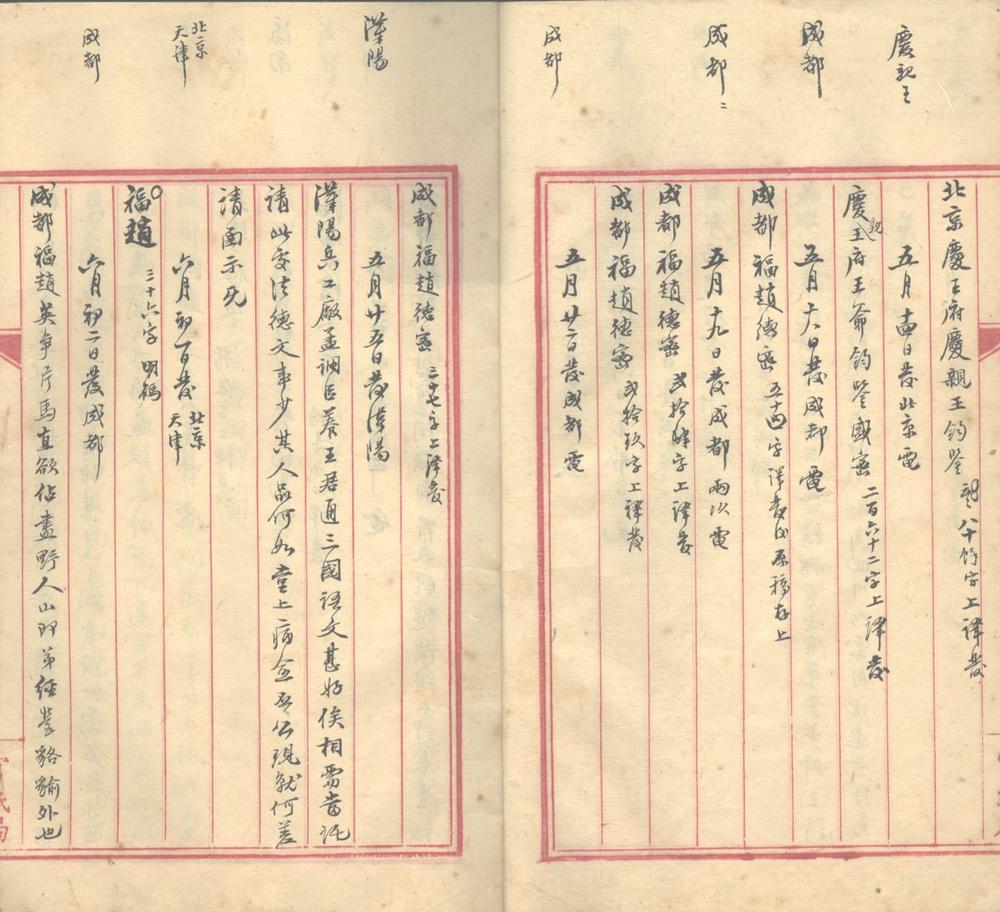 慶親王
成都
成都二
成都
北京慶王府慶親王鈞鑒 八十餘字上譯發
五月十四日發北京電
慶親王府王爺鈞鑒盛密 二百六十二字上譯發
五月十六日發成都電
成都福趙德密 五十四字譯發 原稿存上
五月十九日發成都兩次電
成都福趙德密 貳拾肆字上譯發
成都福趙德密 貳拾玖字上譯發
五月廿二日發成都電
漢陽
北京
天津
成都
成都福趙德密 三十七字上譯發
五月廿五日發漢陽
漢陽兵工廠孟調臣養王君通三國語文甚好俟相需當託
請此處法德文事少其人品何如堂上病念吾公現就何差
請函示光
六月初一日發北京天津
福趙 三十六字 明碼
六月初二日發成都
成都福趙英爭片馬直欲佔盡野人山 弟經掌貉貐外也